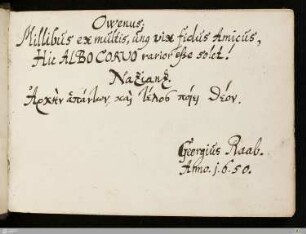 Owenus;
Millibus ex multis, unq vix fidus Amicus,
Hic ALBO CORVO rarior esse solet!
Nazianz.
Ἀρχὴν ἁπάντων καὶ τέλος ποίει θεόν.
Georgius Raab.
Anno. 1.6.50.